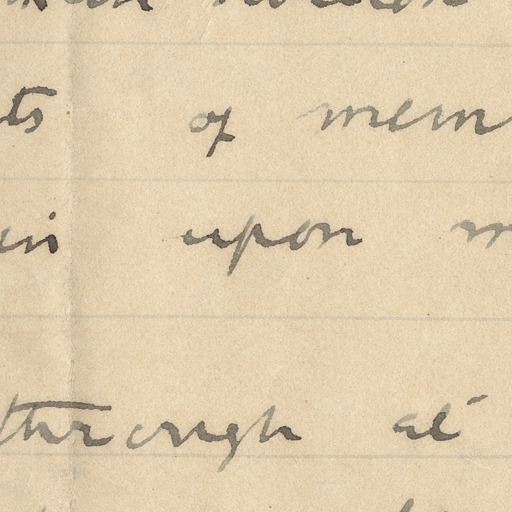 ts of mem
in upon m
through at